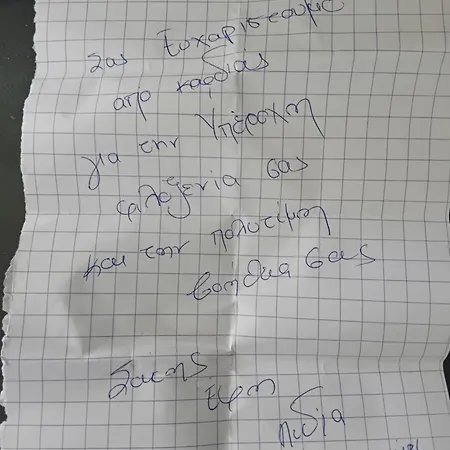 Σας Ευχαριστουμε
απο καρδιας
για την Υπέροχη
φιλοξενια σας
και την πολυτιμη
βοηθεια σας
Σακης
Εφη